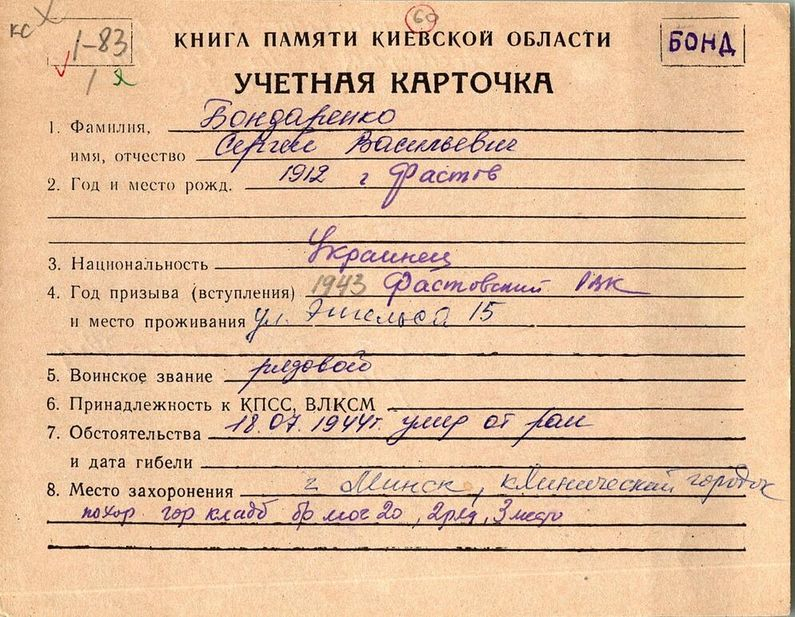 КС
60
1-83
1 Я
КНИГА ПАМЯТИ КИЕВСКОЙ ОБЛАСТИ
БОНД
УЧЕТНАЯ КАРТОЧКА
1. Фамилия, Бондаренко
имя, отчество Сергей Васильевич
2. Год и место рожд. 1912 г Фастов
3. Национальность Украинец
4. Год призыва (вступления) 1943 Фастовский РВК
и место проживания ул. Энгельса 15
5. Воинское звание рядового
6. Принадлежность к КПСС, ВЛКСМ
7. Обстоятельства 18.07.1944г. умер от ран
и дата гибели
8. Место захоронения г Минск, клинический городок
похор гор кладб бр мог 20, 2 ряд, 3 место